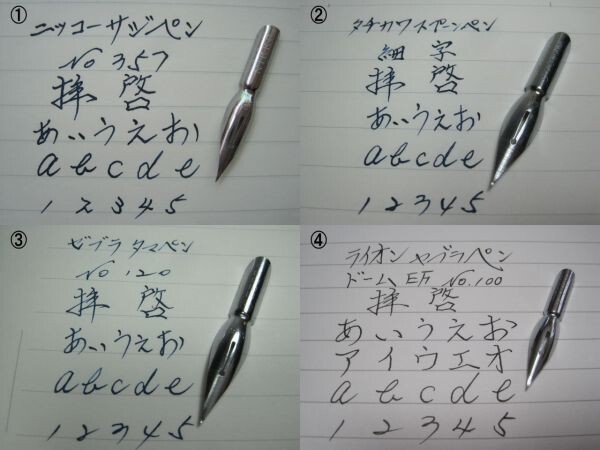 ①
ニッコーサジペン
No 357
拝啓
あいうえお
a b c d e
1 2 3 4 5
②
タチカワスプーンペン
細字
拝啓
あいうえお
a b c d e
1 2 3 4 5
③
ゼブラタマペン
No 120
拝啓
あいうえお
a b c d e
1 2 3 4 5
④
ライオン ペン
ドーム No.100
拝啓
あいうえお
アイウエオ
a b c d e
1 2 3 4 5